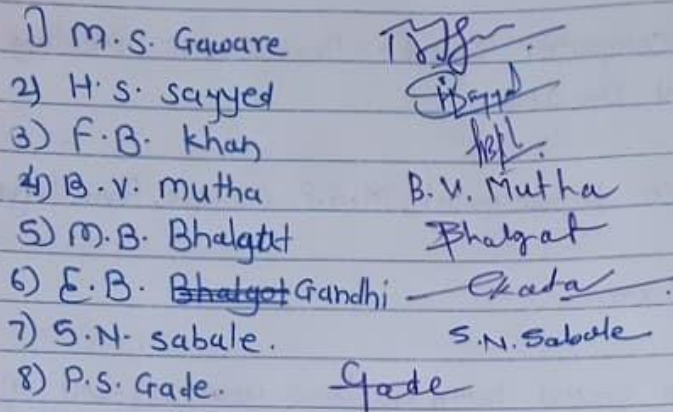 1) M.S. Gaware
2) H.S. Sayyed Sayyed
3) F.B. Khan
4) B.V. Mutha B.V. Mutha
5) M.B. Bhalgat Bhalgat
6) E.B. Bhalgat Gandhi
7) S.N. Sabale. S.N. Sabale
8) P.S. Gade. Gade